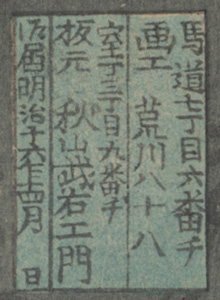 馬道七丁目六番チ
画工 荒川八十八
丁目九番チ
板元 秋山武右エ門
御届明治十六年四月 日